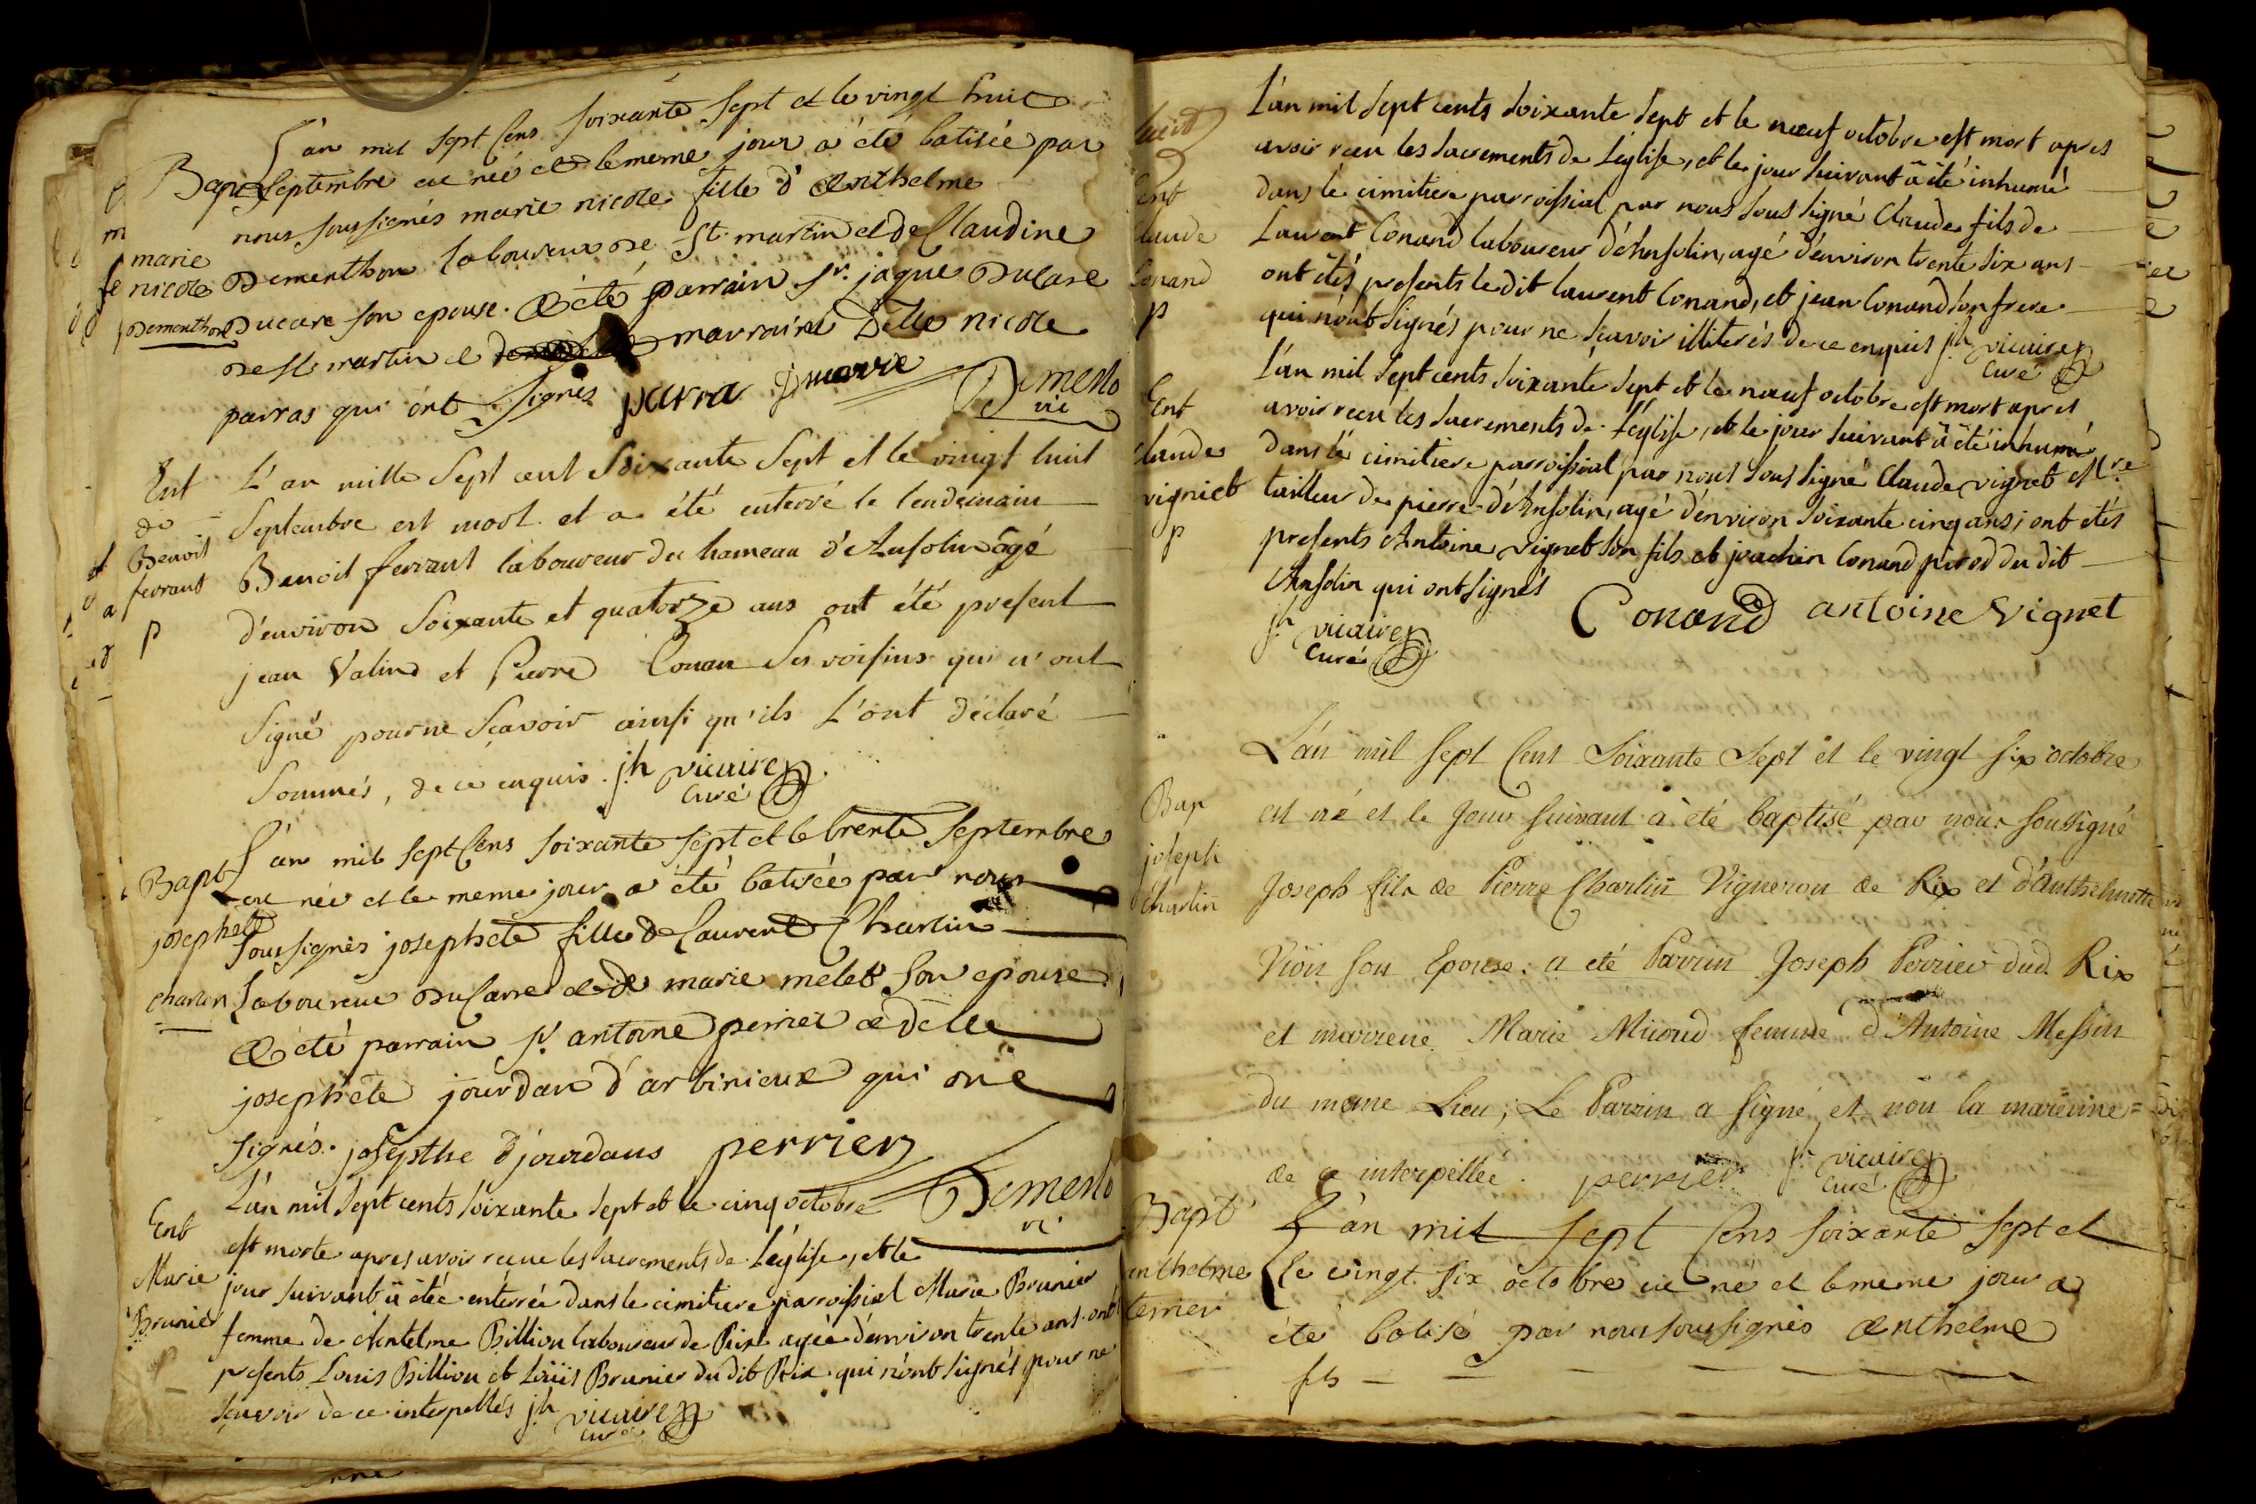 L'an mil sept Cens soixante sept et le vingt huit
Bapt septembre est née et le meme jour a été batisée par
nous soussignés marie nicole fille d'Anthelme
marie
nicole
Dementhon
Dementhon laboureur de St martin et de Claudine
Ducare son epouse. A été parrain Sr. jaque Ducare
de St martin et marraine Delle nicole
parras qui ont signés parra Ducarre Demerlo
vic
Ent
de
Benoit
ferrant
p
L'an mille Sept cent Soixante Sept et le vingt huit
Septembre est mort et a été enterré le lendemain
Benoit ferrant laboureur du hameau d'Ansolin âgé
d'environ Soixante et quatorze ans ont été present
jean Valin et Pierre Conan Ses voisins qui n'ont
Signé pour ne Sçavoir ainsi qu'ils L'ont déclaré
Sommés, de ce enquis. jh vicaire
Curé
Bapt
josephete
charlin
L'an mil sept Cens soixante sept et le trente septembre
est née et le meme jour a été batisée par nous
soussignés josephete fille de Laurent Charlin
laboureur Ducarre et de marie melet son epouse
A été parrain Sr antoine perrier et delle
josephete jourdan d'arbinieux qui ont
signés. josepthe d'jourdans perrier Demerlo
vi
Ent
Marie
Brunier
L'an mil sept cents soixante sept et le cinq octobre
est morte apres avoir reçue les sacrements de L'église, et le
jour suivant a été enterrée dans le cimitiere parroissial Marie Brunier
femme de Antelme Billion laboureur de Rix agée d'environ trente ans. ont
presents Louis Billion et Loüis Brunier du dit Rix qui n'ont signés pour ne
sçavoir de ce interpellés jh vicaire
curé
Ent
Claude
Conand
p
L'an mil sept cents soixante sept et le neuf octobre est mort apres
avoir reçu les sacrements de L'église, et le jour suivant a été inhumé
dans le cimitiere parroissial par nous sous signé Claude fils de
Laurent Conand laboureur d'Ansolin, agé d'environ trente six ans
ont étés presents le dit laurent Conand, et jean Conand son frere
qui n'ont signés pour ne sçavoir illiterés de ce enquis jh vicaire
Curé
Ent
Claude
vigniet
p
L'an mil sept cents soixante sept et le neuf octobre est mort apres
avoir reçu les sacrements de l'église, et le jour suivant a été inhumé
dans le cimitiere parroissial par nous sous signé Claude vignet Mre
tailleur de pierre d'Ansolin, agé d'environ soixante cinq ans; ont étés
presents Antoine vignet son fils et joachin Conand pirod du dit
Ansolin qui ont signés Conand antoine vignet
jh vicaire
Curé
Bap
joseph
Charlin
L'an mil sept Cent Soixante Sept et le vingt six octobre
est né et le Jour suivant a été baptisé par nous soussigné
Joseph fils de Pierre Charlin Vigneron de Rix et d'Anthelmette
Vion son Epouse: a été Parrin Joseph Perrier dud. Rix
et marrene Marie Micoud femme d'Antoine Messin
du meme Lieu; Le Parrin a signé et non la mareine=
de ce interpellée. perrier jh vicaire
curé
Bapt
anthelme
terrier
L'an mil sept Cens soixante sept et
le vingt six octobre est né et le meme jour a
été batisé par nous soussignés Anthelme
fils